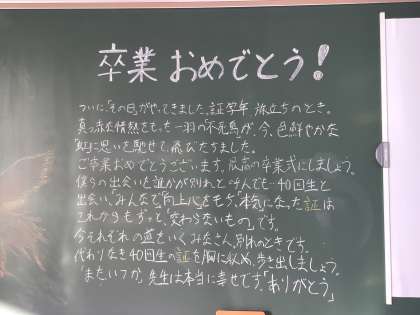 卒業おめでとう!
ついに、「その日」がやってきました。証学年 旅立ちのとき。
真っ赤な情熱をもった一羽の不死鳥が、今、色鮮やかな
「虹」に思いを馳せて、飛びたちました。
ご卒業おめでとうございます。最高の卒業式にしましょう。
僕らの出会いを誰かが別れと呼んでも…40回生と
出会い、「みんなで」「向上心」をもち、「本気」になった証は
これからもずっと、「変わらないもの」です。
今、それぞれの道をいくみなさん、別れのときです。
代わりなき40回生の証を胸に収め、歩き出しましょう。
「また、いつか。」先生は本当に幸せです。「ありがとう。」